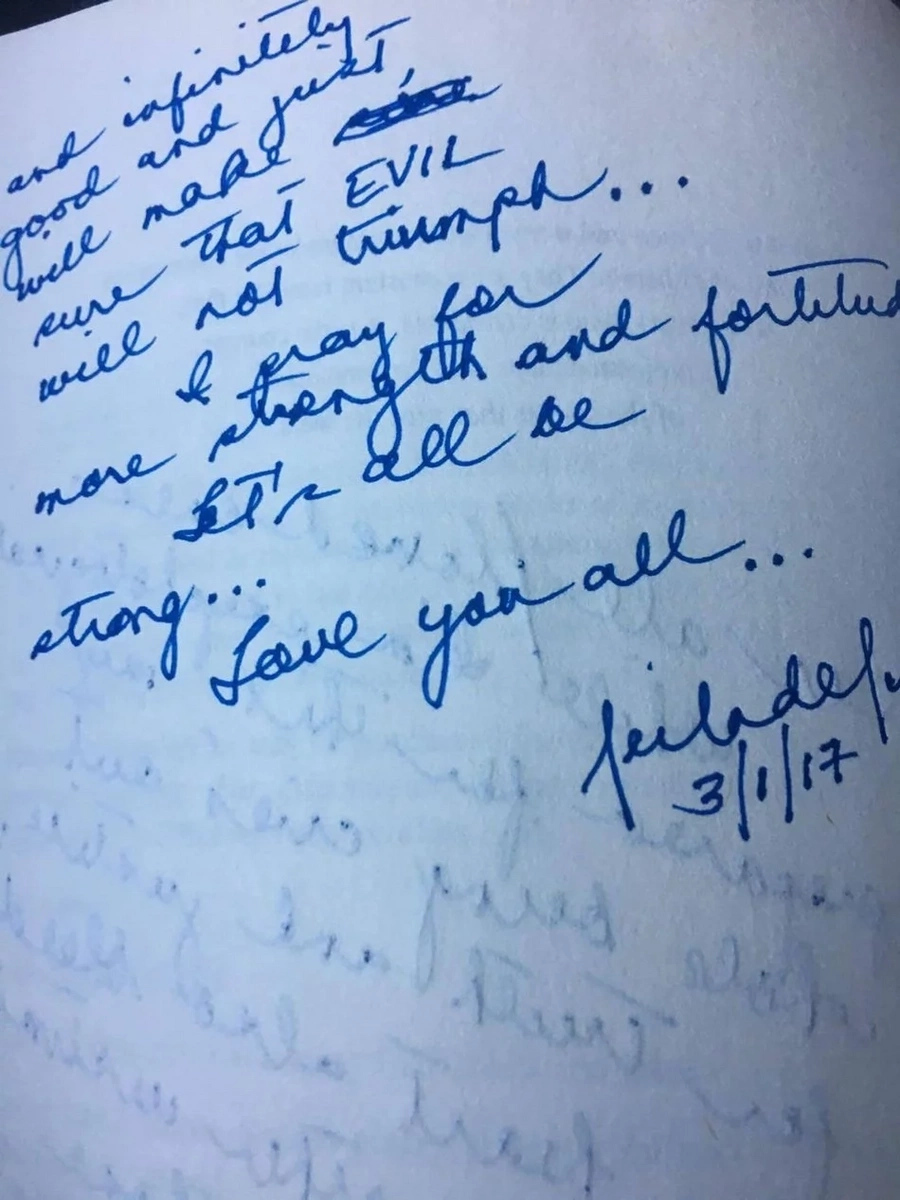 and infinitely
good and just,
will make
sure that EVIL
will not triumph...
I pray for
more strength and fortitud
Let's all be
strong...
Love you all...
3/1/17